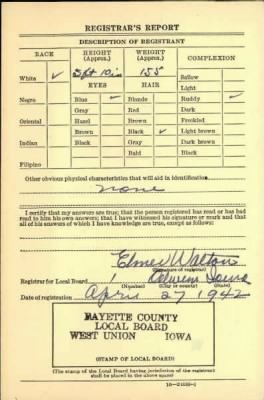 REGISTRAR'S REPORT
DESCRIPTION OF REGISTRANT
RACE HEIGHT (Approx.) WEIGHT (Approx.) COMPLEXION
White ✓ 5 ft 10 in 155 Sallow
EYES HAIR Light
Negro Blue ✓ Blonde Ruddy ✓
Gray Red Dark
Oriental Hazel Brown Freckled
Brown Black ✓ Light brown
Indian Black Gray Dark brown
Bald Black
Filipino
Other obvious physical characteristics that will aid in identification
none
I certify that my answers are true; that the person registered has read or has had
read to him his own answers; that I have witnessed his signature or mark and that
all of his answers of which I have knowledge are true, except as follows:
Elmer Walton
(Signature of registrar)
Registrar for Local Board Oelwein Iowa
(Number) (City or county) (State)
Date of registration April 27 1942
FAYETTE COUNTY
LOCAL BOARD
WEST UNION IOWA
(STAMP OF LOCAL BOARD)
(The stamp of the Local Board having jurisdiction of the registrant
shall be placed in the above space)